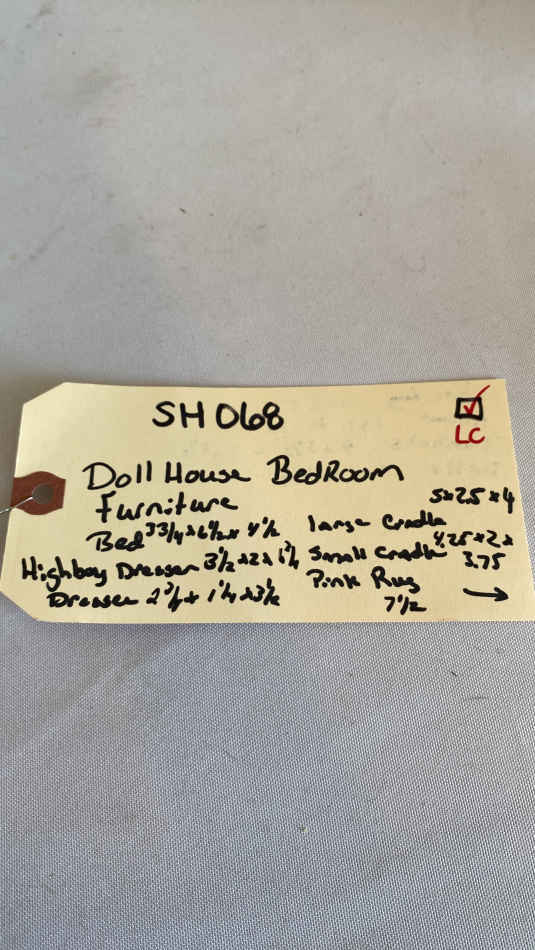 SH068
LC
Doll House BedRoom
Furniture
Bed 3 3/4 x 6 1/2 x 4 1/2
Highboy Dresser 3 1/2 x 2 x 1 3/4
Dresser 2 3/4 x 1 1/4 x 3 1/2
large Cradle 5x2.5x4
Small Cradle 4.25x2x
3.75
Pink Rug
7 1/2